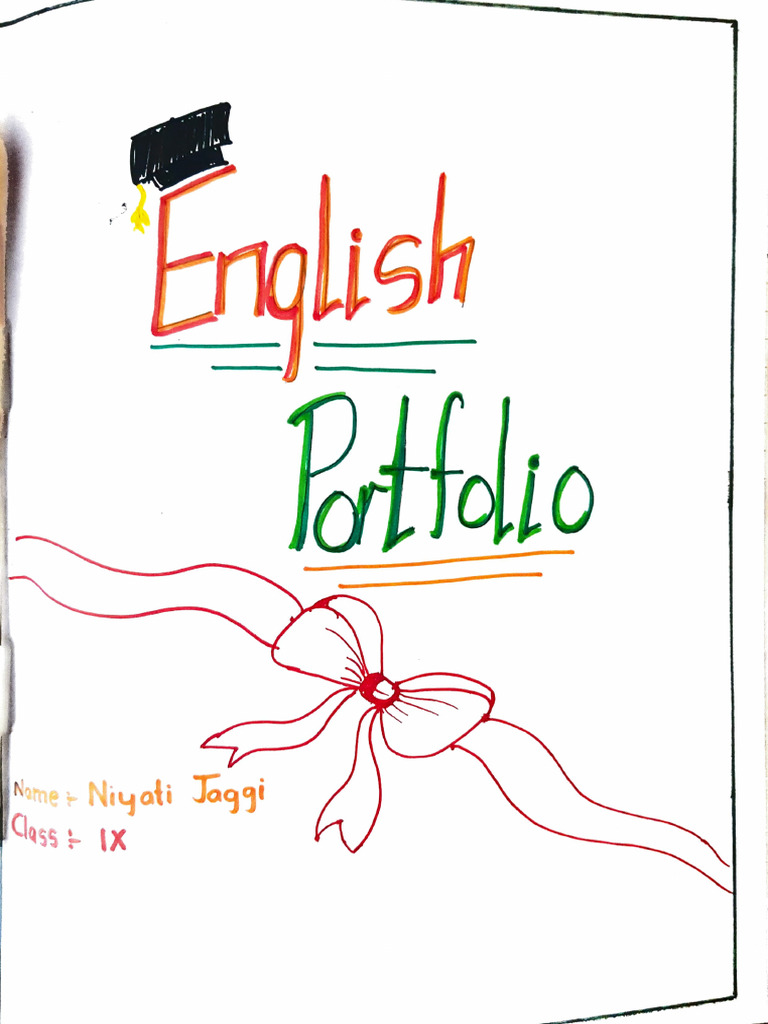 English
Portfolio
Name :- Niyati Jaggi
Class :- IX